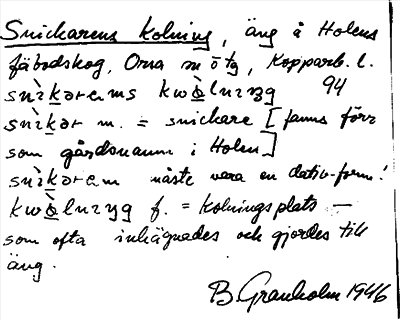 Snickarens kolning, äng å Holens
fäbodskog, Orsa sn ö tg, Kopparb. l.
snìkərəms kwòlnɩŋg 94
snìkər m. = snickare [fanns förr
som gårdsnamn i Holen]
snìkərəm måste vara en dativ-form!
kwòlnɩŋg f. = kolningsplats —
som ofta inhägnades och gjordes till
äng.
B. Granholm 1946